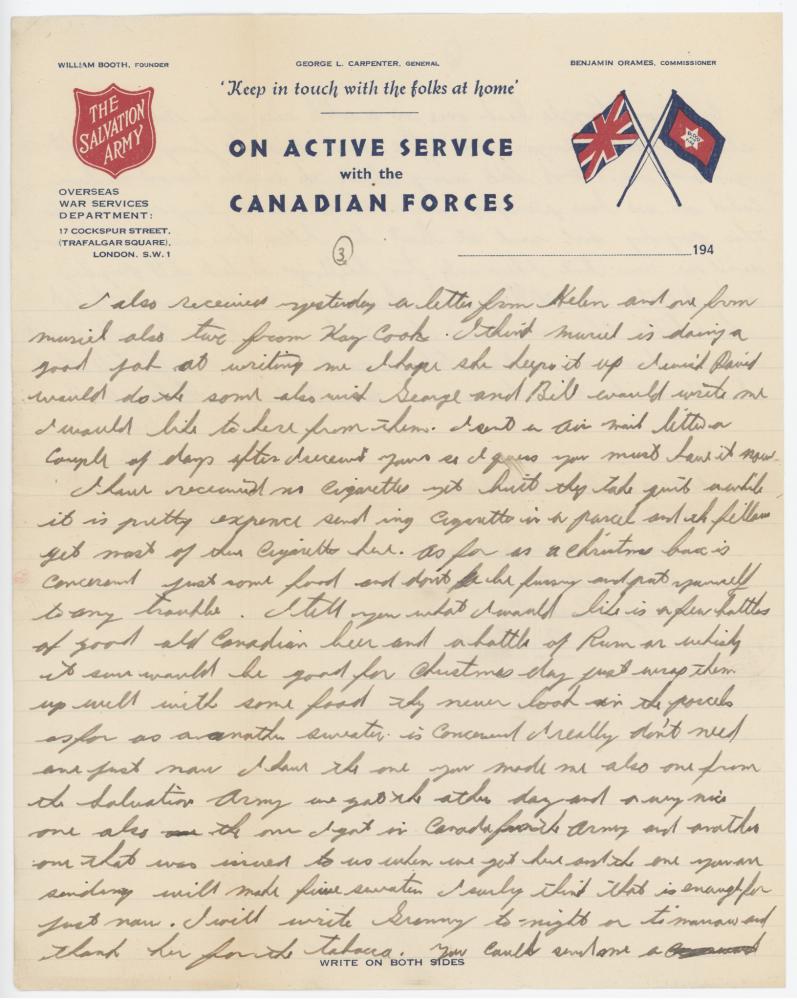 WILLIAM BOOTH, FOUNDER
GEORGE L. CARPENTER, GENERAL
BENJAMIN ORAMES, COMMISSIONER
'Keep in touch with the folks at home'
THE
SALVATION
ARMY
ON ACTIVE SERVICE
with the
CANADIAN FORCES
OVERSEAS
WAR SERVICES
DEPARTMENT:
17 COCKSPUR STREET,
(TRAFALGAR SQUARE),
LONDON. S.W.1
3
194
I also received yesterday a letter from Helen and one from
muriel also two from Kay Cook. I think muriel is doing a
good job at writing me I hope she keeps it up I wish David
would do the same also wish George and Bill would write me
I would like to here from them. I sent a air mail letter a
couple of days after I received yours so I guess you must have it now.
I have received no cigarettes yet but they take quit awhile
it is pretty expence send ing cigarette in a parcel and th fellows
get most of there cigarette here. as far as a Christmas box is
concerned just some food and dont be fussy and put yourself
to any trouble. I tell you what I would like is a few bottles
of good old Canadian beer and a bottle of Rum or whisky
it sure would be good for Christmas day just wrap them
up well with some food they never look in the parcels
as far as a another sweater is concerned I really don't need
one just now I have the one you made me also one from
the Salvation Army we got the other day and a very nice
one also the one I got in Canada from the Army and another
one that was issued to us when we got here and the one you are
sending will make five sweaters I surly think that is enough for
just now. I will write Granny to-night or tomorrow and
thank her for the tobacco. You could send me a
WRITE ON BOTH SIDES